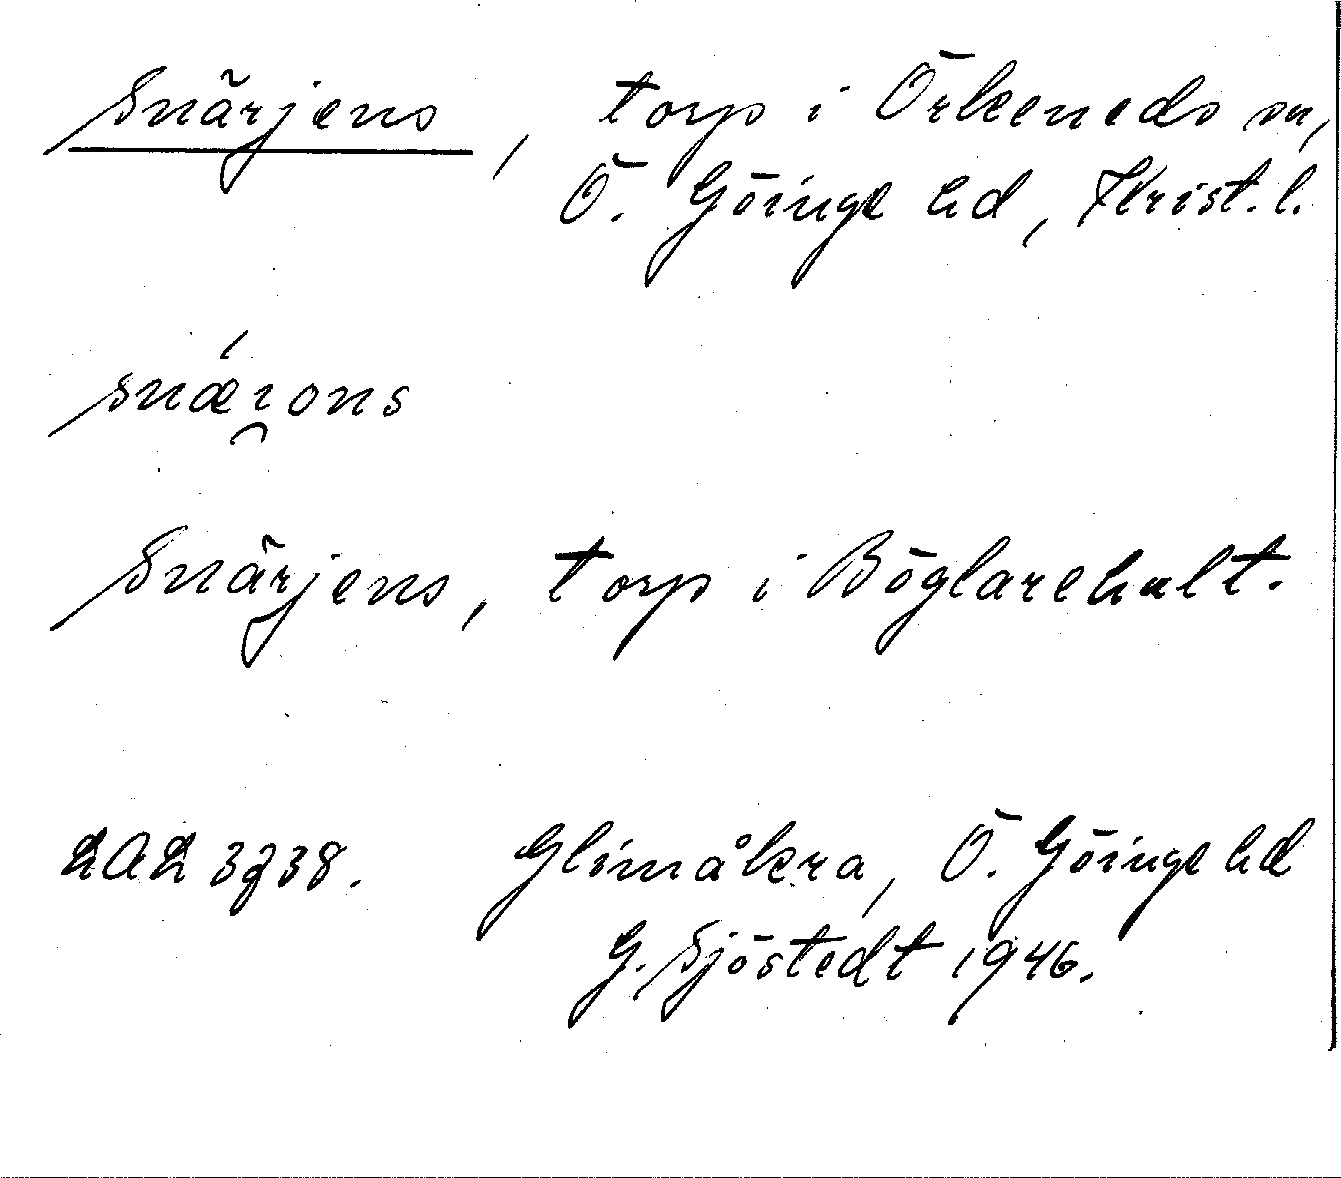 Snärjens, torp i Örkeneds sn,
Ö. Göinge hd, Krist. l.
Snärjens, torp i Böglarehult.
LAL 3738. Glimåkra, Ö. Göinge hd
G. Sjöstedt 1946.